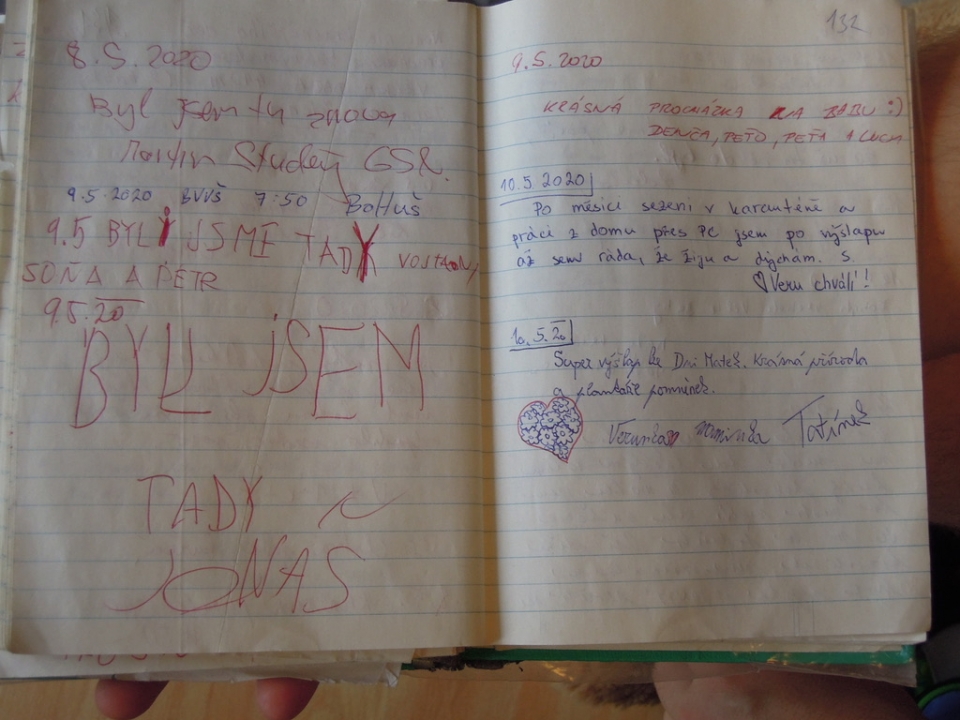 8.5.2020
Byl jsem tu znovu
Martin Studený GSR.
9.5.2020 BVVŠ 7:50 BoHuš
9.5 BYLI JSME TADY
SOŇA A PETR
9.5.20
BYL JSEM
TADY
JONAS
132
9.5.2020
KRÁSNÁ PROCHÁZKA NA BABU :)
DENČA, PEŤO, PEŤA A
10.5 2020
Po měsíci sezení v karanténě a
práci z domu přes PC jsem po výšlapu
až sem ráda, že žiju a dýchám. S
♡ Veru chválí!
10.5.20
Super výšlap ke Dni Matek. Krásná příroda
a plantáže pomněnek.
Verunka maminka Tatínek